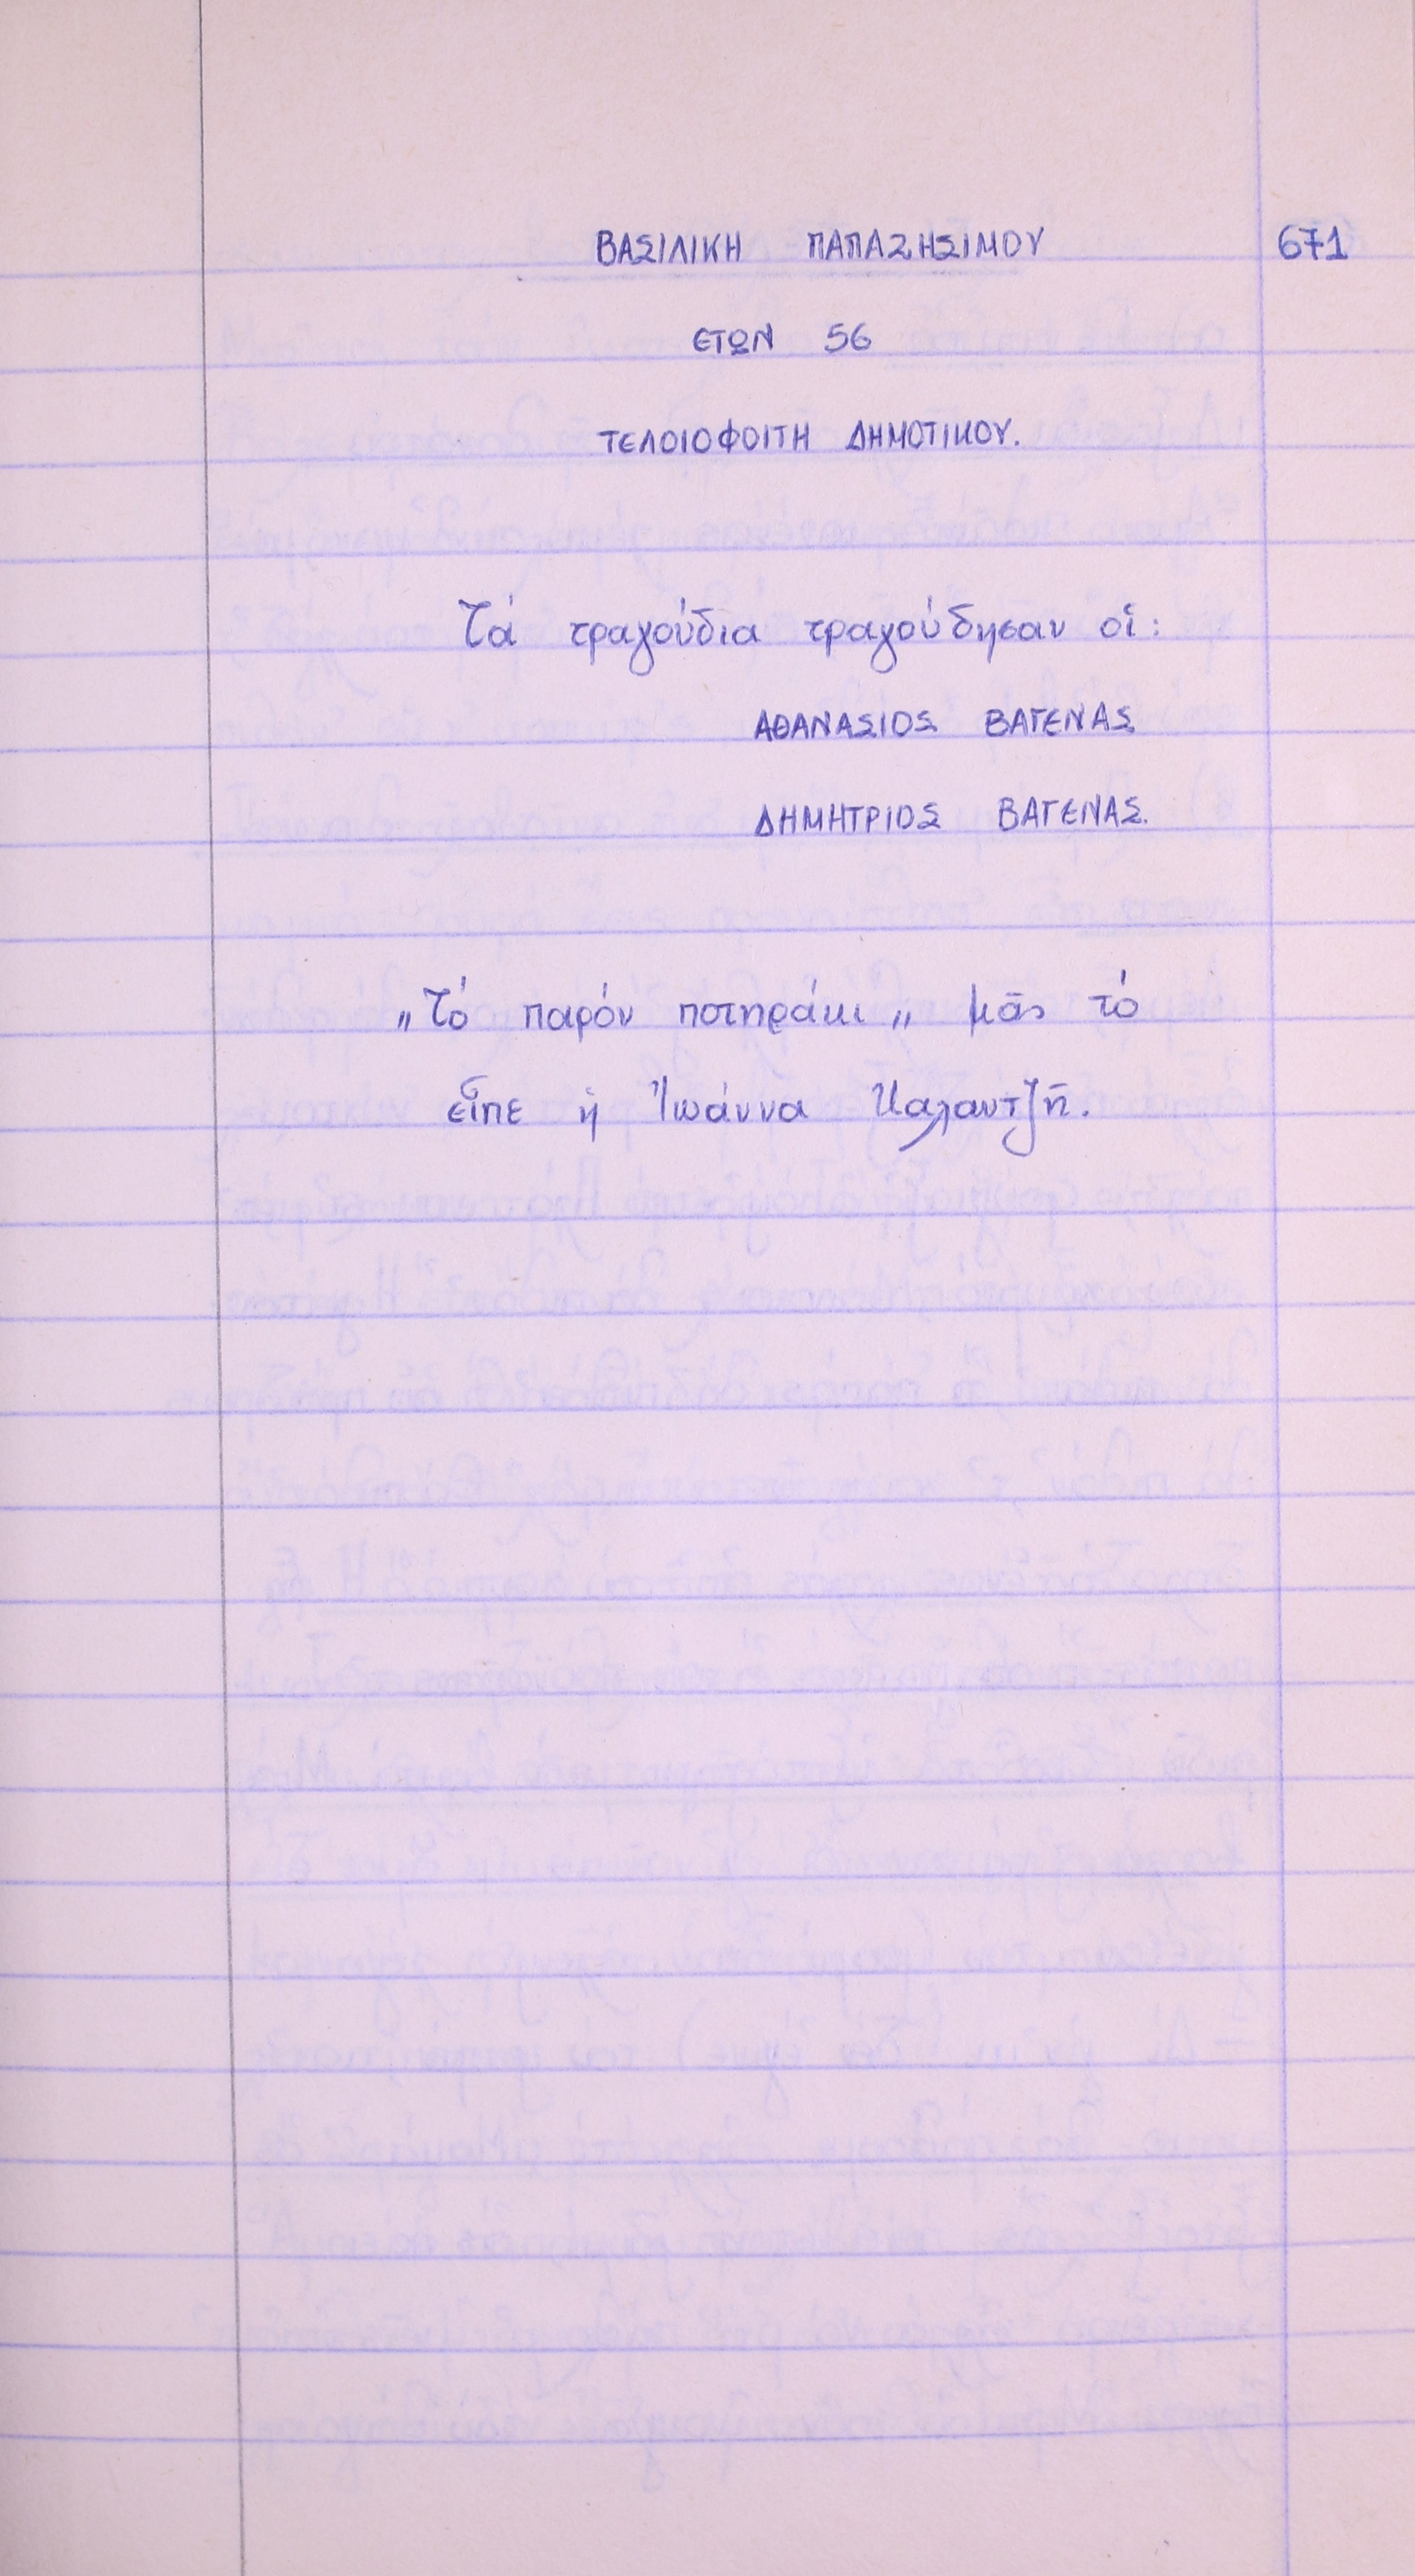 ΒΑΣΙΛΙΚΗ ΠΑΠΑΖΗΣΙΜΟΥ 671
ΕΤΩΝ 56
ΤΕΛΟΙΟΦΟΙΤΗ ΔΗΜΟΤΙΚΟΥ.
Τά τραγούδια τραγούδησαν οἱ:
ΑΘΑΝΑΣΙΟΣ ΒΑΓΕΝΑΣ
ΔΗΜΗΤΡΙΟΣ ΒΑΓΕΝΑΣ.
„Τό παρόν ποτηράκι„ μᾶς τό
εἶπε ἡ Ἰωάννα Καλαντζῆ.